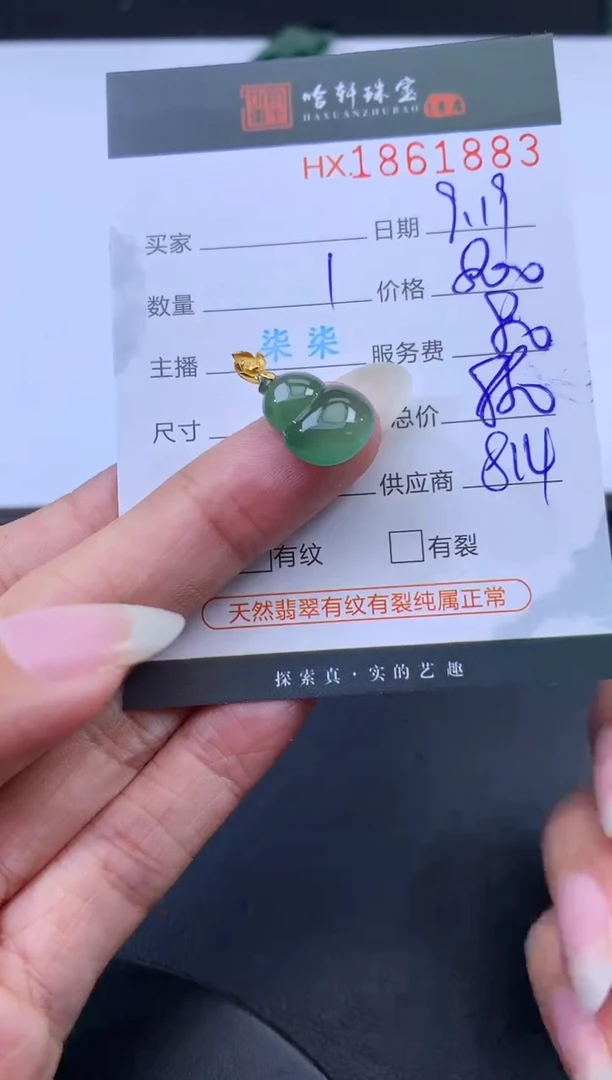 哈轩珠宝
HAXUANZHUBAO
HX.1861883
买家 日期 9.19
数量 1 价格
主播 柒柒 服务费
尺寸 总价
供应商 814
有纹 有裂
天然翡翠有纹有裂纯属正常
探索真·实的艺趣